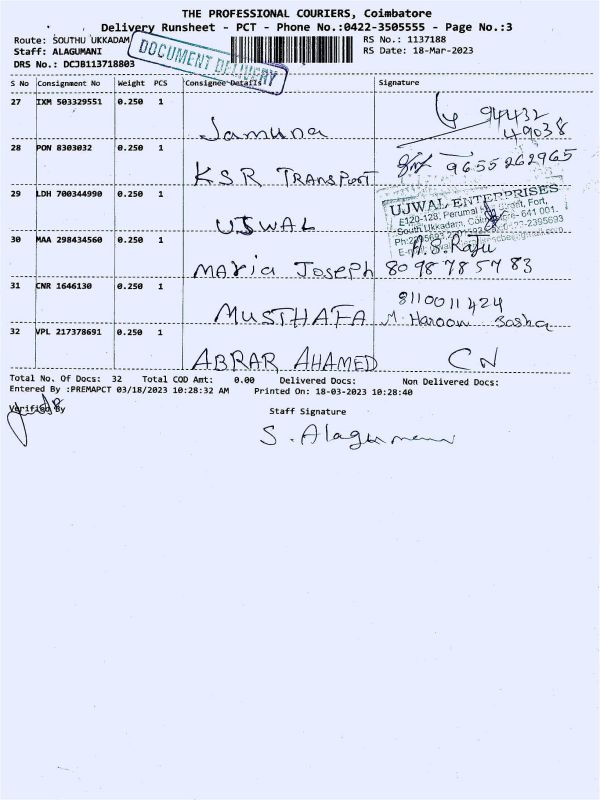 THE PROFESSIONAL COURIERS, Coimbatore
Delivery Runsheet - PCT - Phone No.:0422-3505555 - Page No.:3
Route: SOUTHU UKKADAM RS No.: 1137188
Staff: ALAGUMANI RS Date: 18-Mar-2023
DRS No.: DCJB113718803
DOCUMENT DELIVERY
S No Consignment No Weight PCS Consignee Details Signature
27 IXM 503329551 0.250 1
Jamuna 94432
49038
28 PON 8303032 0.250 1
KSR TRANSPORT 9655262965
29 LDH 700344990 0.250 1
UJWAL ENTERPRISES
E120-128, Perumal Street, Fort,
South Ukkadam, 641 001.
UJWAL
30 MAA 298434560 0.250 1 A.S. Raju
Maria Joseph 8098785783
31 CNR 1646130 0.250 1 8110011424
MUSTHAFA M. Haroon Basha
32 VPL 217378691 0.250 1
ABRAR AHAMED CN
Total No. Of Docs: 32 Total COD Amt: 0.00 Delivered Docs: Non Delivered Docs:
Entered By :PREMAPCT 03/18/2023 10:28:32 AM Printed On: 18-03-2023 10:28:40
Verified By Staff Signature
S. Alagumani